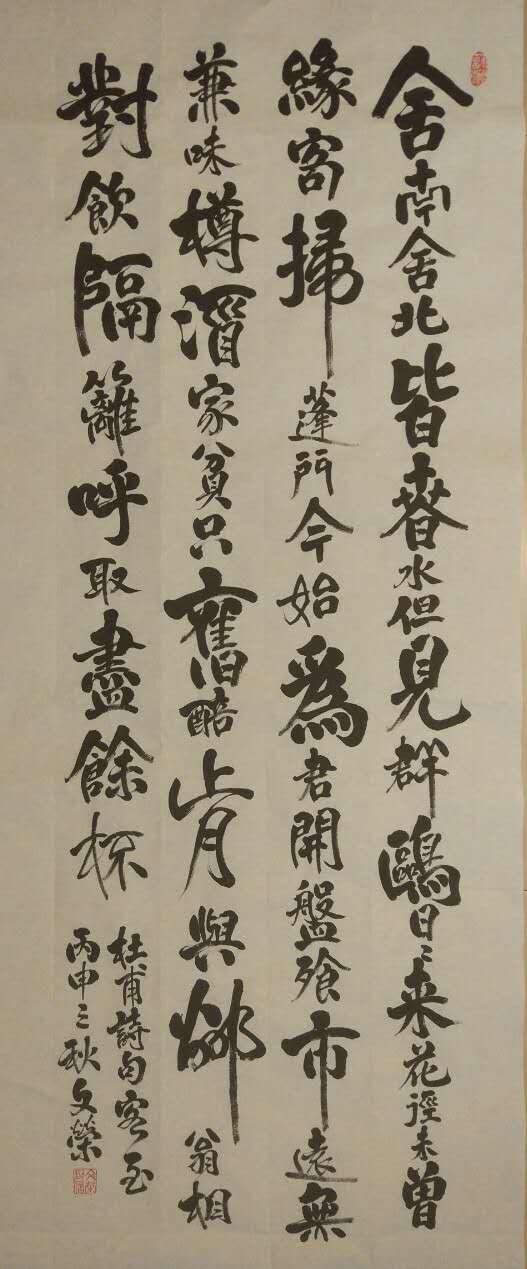 舍南舍北皆春水但見群鷗日々来花徑未曾
緣客掃蓬門今始爲君開盤飧市遠無
兼味樽酒家貧只舊醅肯與鄰翁相
對飲隔籬呼取盡餘杯
杜甫詩句客至
丙申三秋文榮